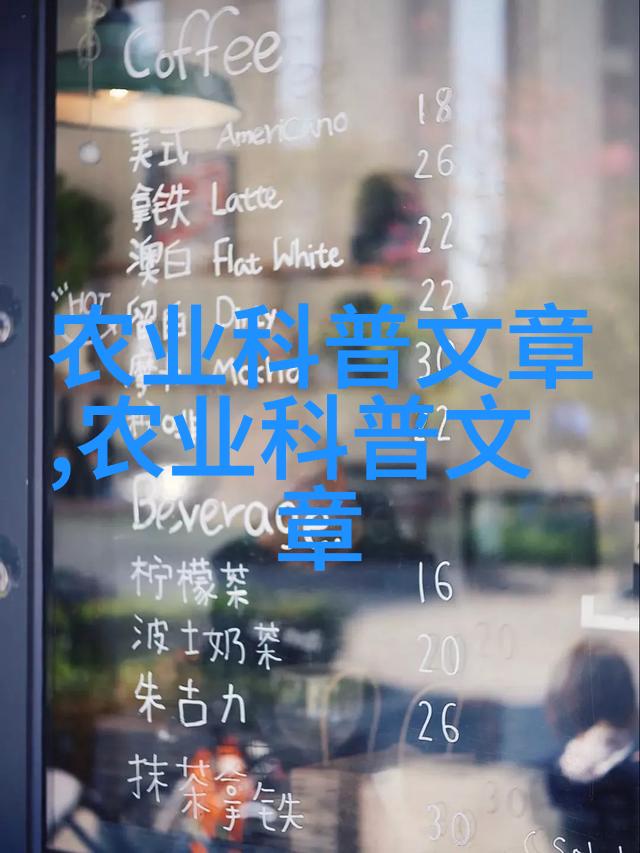 Coffee
美式 Americano 18
拿铁 Latte 26
澳白 Flat White 22
"HOT
Dirty 22
农业科普文章
Mocha 30
,农业科普文
22
章
Beverage
柠檬茶 16
波士奶茶 20
朱古力 26
抹茶拿铁 30